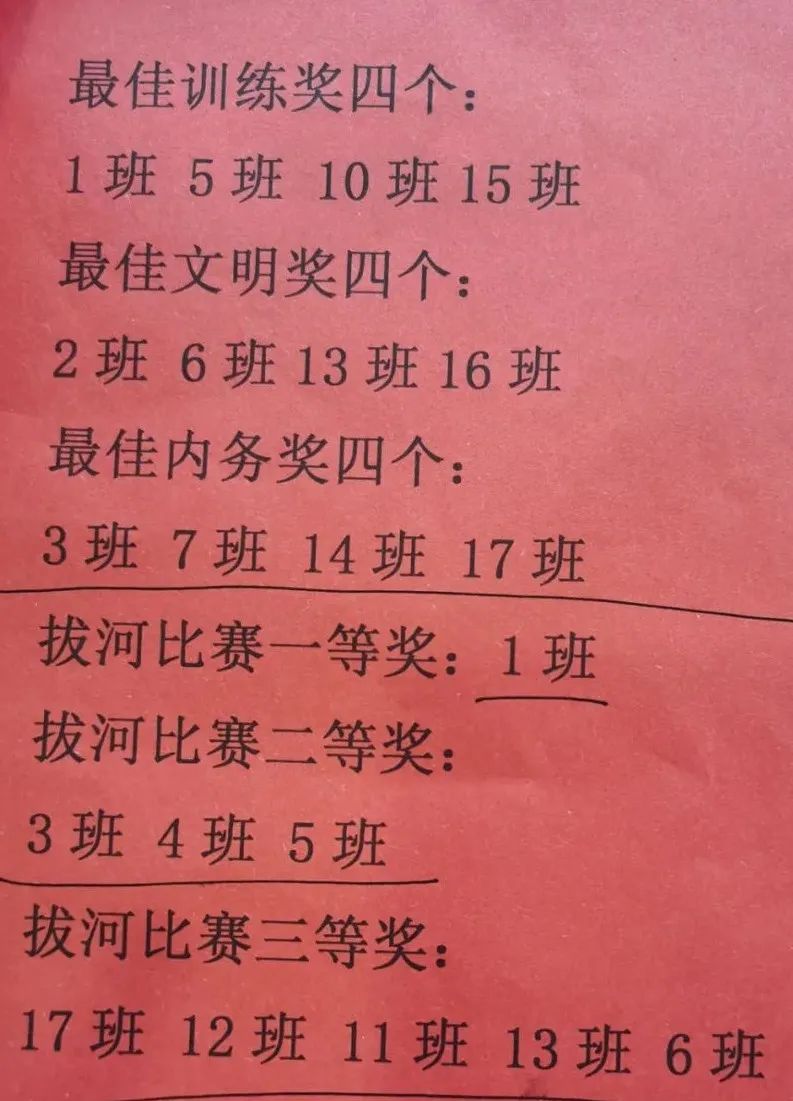 最佳训练奖四个：
1班 5班 10班 15班
最佳文明奖四个：
2班 6班 13班 16班
最佳内务奖四个：
3班 7班 14班 17班
拔河比赛一等奖：1班
拔河比赛二等奖：
3班 4班 5班
拔河比赛三等奖：
17班 12班 11班 13班 6班